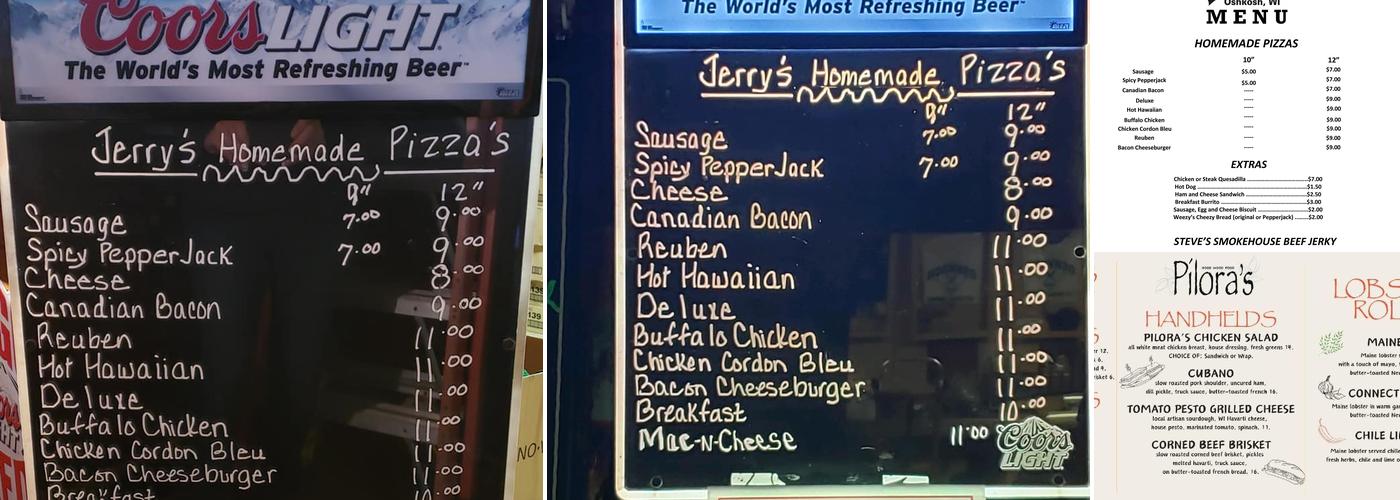 Coors LIGHT
The World's Most Refreshing Beer
Jerry's Homemade Pizza's
9" 12"
Sausage 7.00 9.00
Spicy PepperJack 7.00 9.00
Cheese 8.00
Canadian Bacon 9.00
Reuben 11.00
Hot Hawaiian 11.00
Deluxe 11.00
Buffalo Chicken 11.00
Chicken Cordon Bleu 11.00
Bacon Cheeseburger 11.00
Breakfast 10.00
The World's Most Refreshing Beer
Jerry's Homemade Pizza's
9" 12"
Sausage 7.00 9.00
Spicy PepperJack 7.00 9.00
Cheese 8.00
Canadian Bacon 9.00
Reuben 11.00
Hot Hawaiian 11.00
Deluxe 11.00
Buffalo Chicken 11.00
Chicken Cordon Bleu 11.00
Bacon Cheeseburger 11.00
Breakfast 10.00
Mac-N-Cheese 11.00
Coors LIGHT
Oshkosh, WI
MENU
HOMEMADE PIZZAS
10" 12"
Sausage $5.00 $7.00
Spicy Pepperjack $5.00 $7.00
Canadian Bacon ----- $7.00
Deluxe ----- $9.00
Hot Hawaiian ----- $9.00
Buffalo Chicken ----- $9.00
Chicken Cordon Bleu ----- $9.00
Reuben ----- $9.00
Bacon Cheeseburger ----- $9.00
EXTRAS
Chicken or Steak Quesadilla $7.00
Hot Dog $1.50
Ham and Cheese Sandwich $2.50
Breakfast Burrito $3.00
Sausage, Egg and Cheese Biscuit $2.00
Weezy's Cheezy Bread (original or Pepperjack) $2.00
STEVE'S SMOKEHOUSE BEEF JERKY
Pilora's
HANDHELDS
PILORA'S CHICKEN SALAD
all white meat chicken breast, house dressing, fresh greens 14.
CHOICE OF: Sandwich or Wrap.
CUBANO
slow roasted pork shoulder, uncured ham,
dill pickle, truck sauce, butter-toasted french 16.
TOMATO PESTO GRILLED CHEESE
local artisan sourdough, WI Havarti cheese,
house pesto, marinated tomato, spinach, 11.
CORNED BEEF BRISKET
slow roasted corned beef brisket, pickles
melted havarti, truck sauce,
on butter-toasted french bread, 16.
LOBS
ROL
MAINE
Maine lobster
with a touch of mayo,
butter-toasted Ne
CONNECT
Maine lobster in warm gar
butter-toasted Ne
CHILE LI
Maine lobster served chille
fresh herbs, chile and lime o